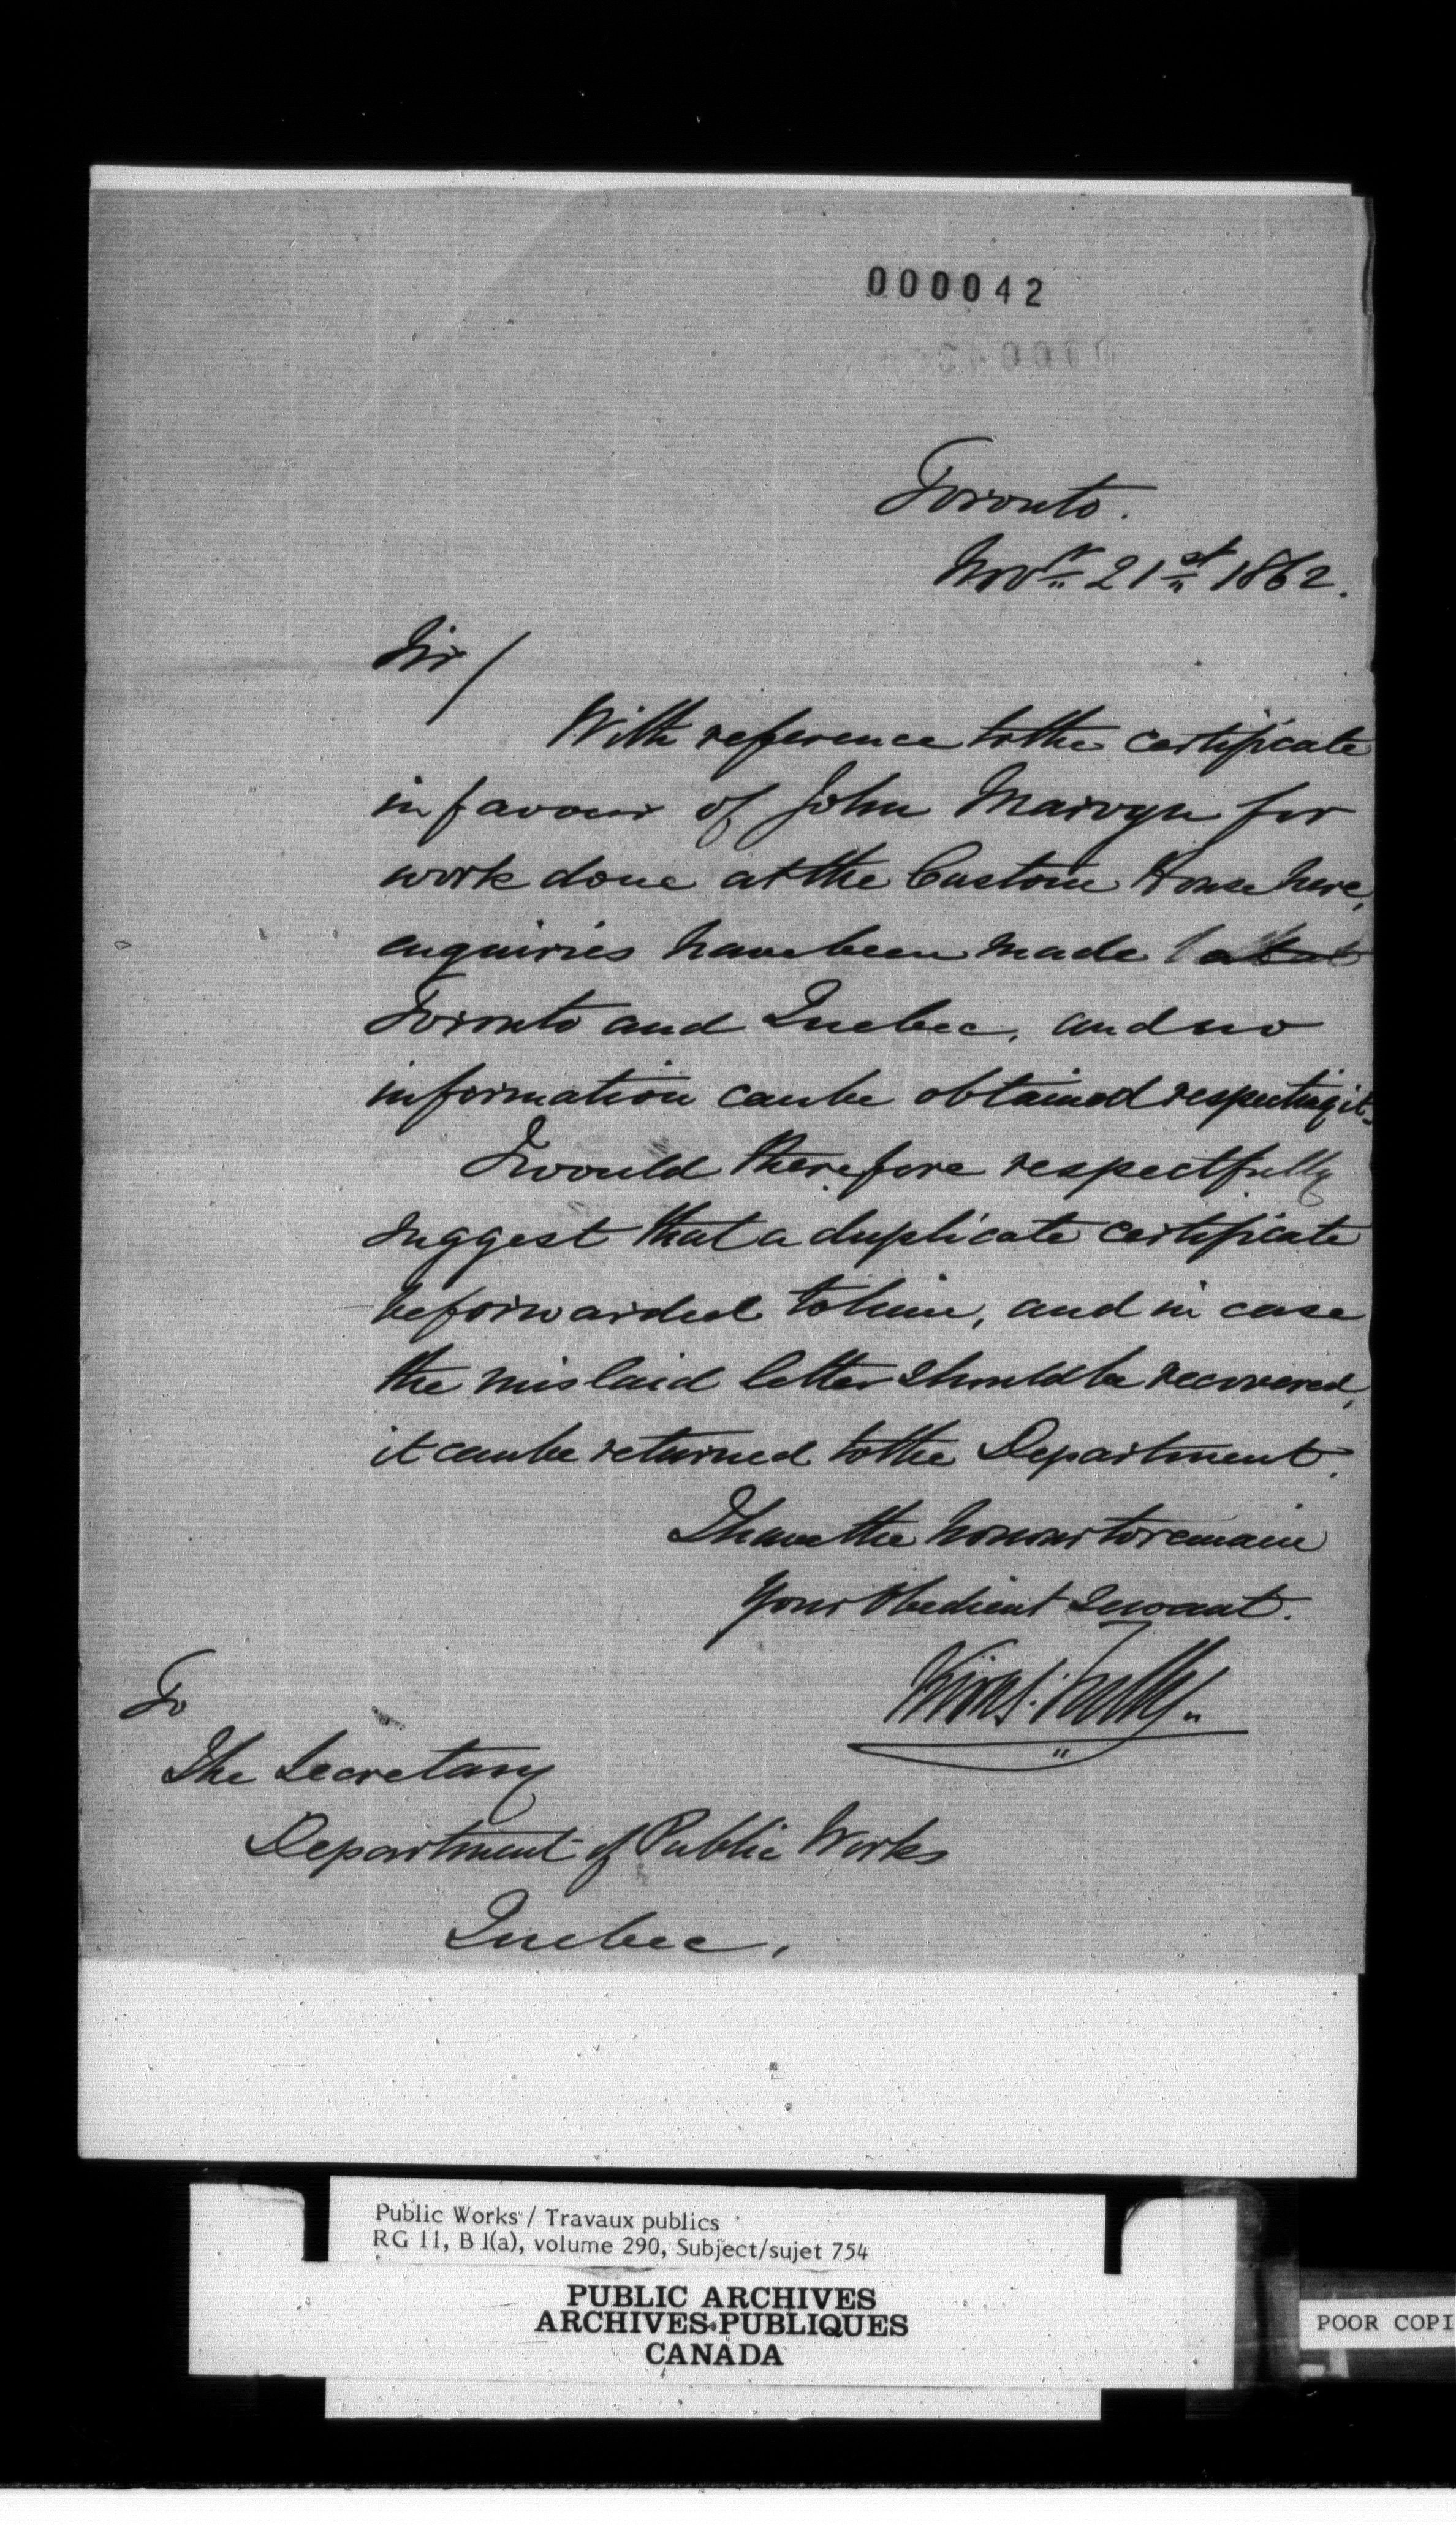 000042
Toronto.
Novr 21st 1862.
Sir/
With reference to the certificate
in favour of John Marvyn for
work done at the Custom House here,
enquiries have been made at
Toronto and Quebec, and no
information can be obtained respecting it.
I would therefore respectfully
suggest that a duplicate certificate
be forwarded to him, and in case
the mislaid letter should be recovered,
it can be returned to the Department.
I have the honour to remain
Your Obedient Servant.
Kivas Tully
To
The Secretary
Department of Public Works
Quebec.
Public Works / Travaux publics
RG 11, B 1(a), volume 290, Subject/sujet 754
PUBLIC ARCHIVES
ARCHIVES PUBLIQUES
CANADA
POOR COPI